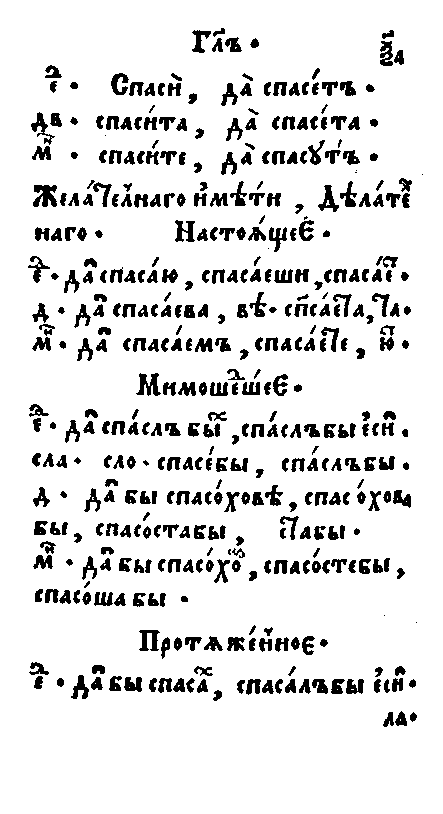 Гл҃ъ ·
є҃ · Спаси̑, да̀ спасе́тъ ·
дв · спаси́та, да̀ спасе́та ·
мⷩ҇ · спаси́те, да̀ спасу́тъ ·
Жела́телнаго и҆мѣ́ти, Дѣла́те
наго · Настоѧ́щеє ·
є҃ · да спаса́ю, спаса́еши, спаса́ет
д · да спаса́ева, вѣ · спаса́ета, та
мⷩ҇ · да спаса́емъ, спаса́ете, ю
Мимоше́дшеє ·
є҃ · да спа́слъ бых, спа́слъбы єси ·
сла · сло · спасе́бы, спа́слъбы ·
д · да бы спасо́ховѣ, спасо́хова
бы, спасо́стабы, стабы ·
мⷩ҇ · да бы спасо́хом, спасо́стебы,
спасо́ша бы ·
Протѧже́нноє ·
є҃ · да бы спаса́х, спаса́лъбы єси ·
ла ·